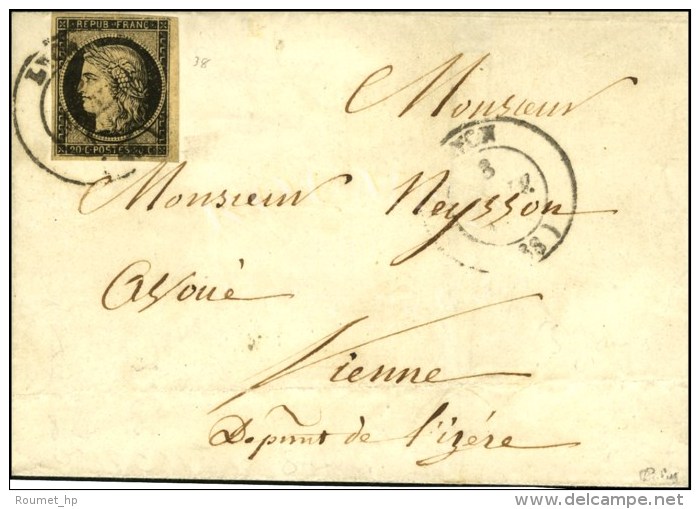 REPUB. FRANC.
20 C. POSTES 20 C.
38
Monsieur
Monsieur Neysson
Avoué
Vienne
Depmnt de l'izére
8
(68)
Roumet_hp
©delcampe.net